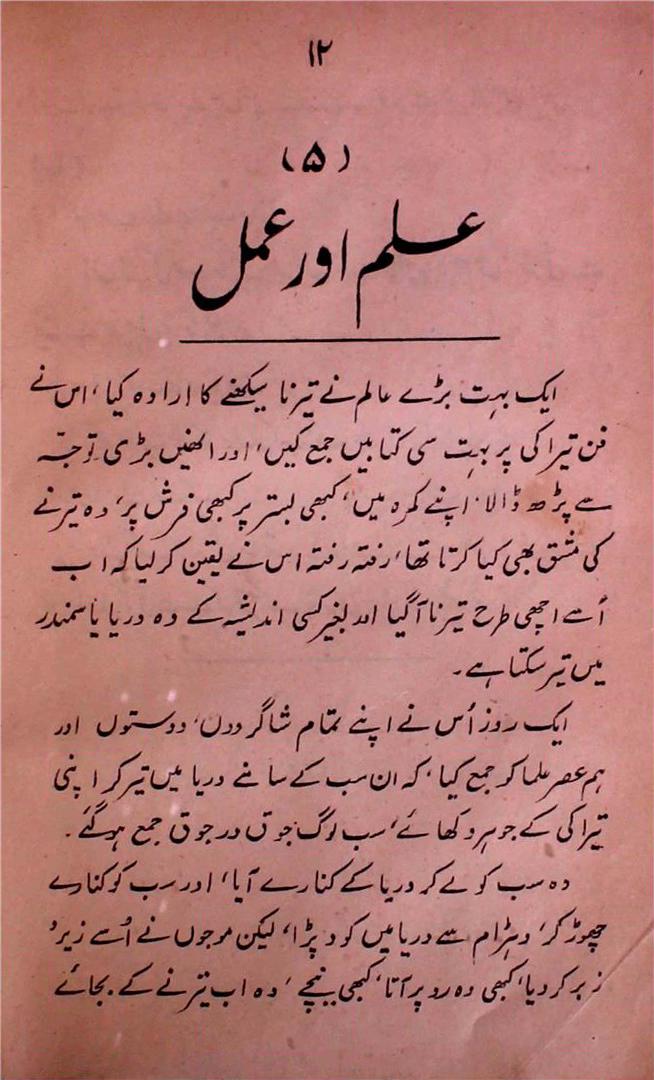 ۱۲
(۵)
علم اور عمل
ایک بہت بڑے عالم نے تیرنا سیکھنے کا ارادہ کیا، اس نے
فن تیراکی پر بہت سی کتابیں جمع کیں، اور انھیں بڑی توجہ
سے پڑھ ڈالا، اپنے کمرہ میں، کبھی بستر پر کبھی فرش پر، وہ تیرنے
کی مشق بھی کیا کرتا تھا، رفتہ رفتہ اس نے یقین کر لیا کہ اب
اُسے اچھی طرح تیرنا آگیا اور بغیر کسی اندیشہ کے وہ دریا یا سمندر
میں تیر سکتا ہے۔
ایک روز اُس نے اپنے تمام شاگردوں، دوستوں اور
ہم عصر علما کو جمع کیا، کہ ان سب کے سامنے دریا میں تیر کر اپنی
تیراکی کے جوہر دکھائے، سب لوگ جوق در جوق جمع ہوگئے۔
وہ سب کو لے کر دریا کے کنارے آیا، اور سب کو کنارے
چھوڑ کر، دہڑام سے دریا میں کود پڑا، لیکن موجوں نے اُسے زیر و
زبر کر دیا، کبھی وہ رو پر آتا، کبھی نیچے، وہ اب تیرنے کے بجائے